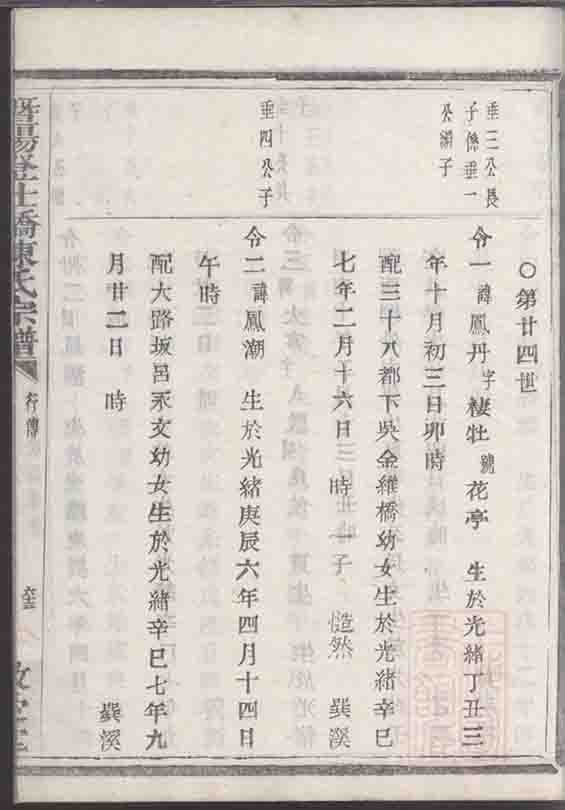 ○第廿四世
垂三公長
子係垂一
公嗣子
令一諱鳳丹字棲牡號花亭 生於光緒丁丑三
年十月初三日卯時
配三十八都下吳金維橋幼女生於光緒辛巳
七年二月十六日 時 一子 然 巽溪
垂四公子
令二諱鳳潮 生於光緒庚辰六年四月十四日
午時
配大路坂呂永文幼女生於光緒辛巳七年九
月廿二日 時 巽溪
暨陽登仕橋陳氏宗譜
行傳